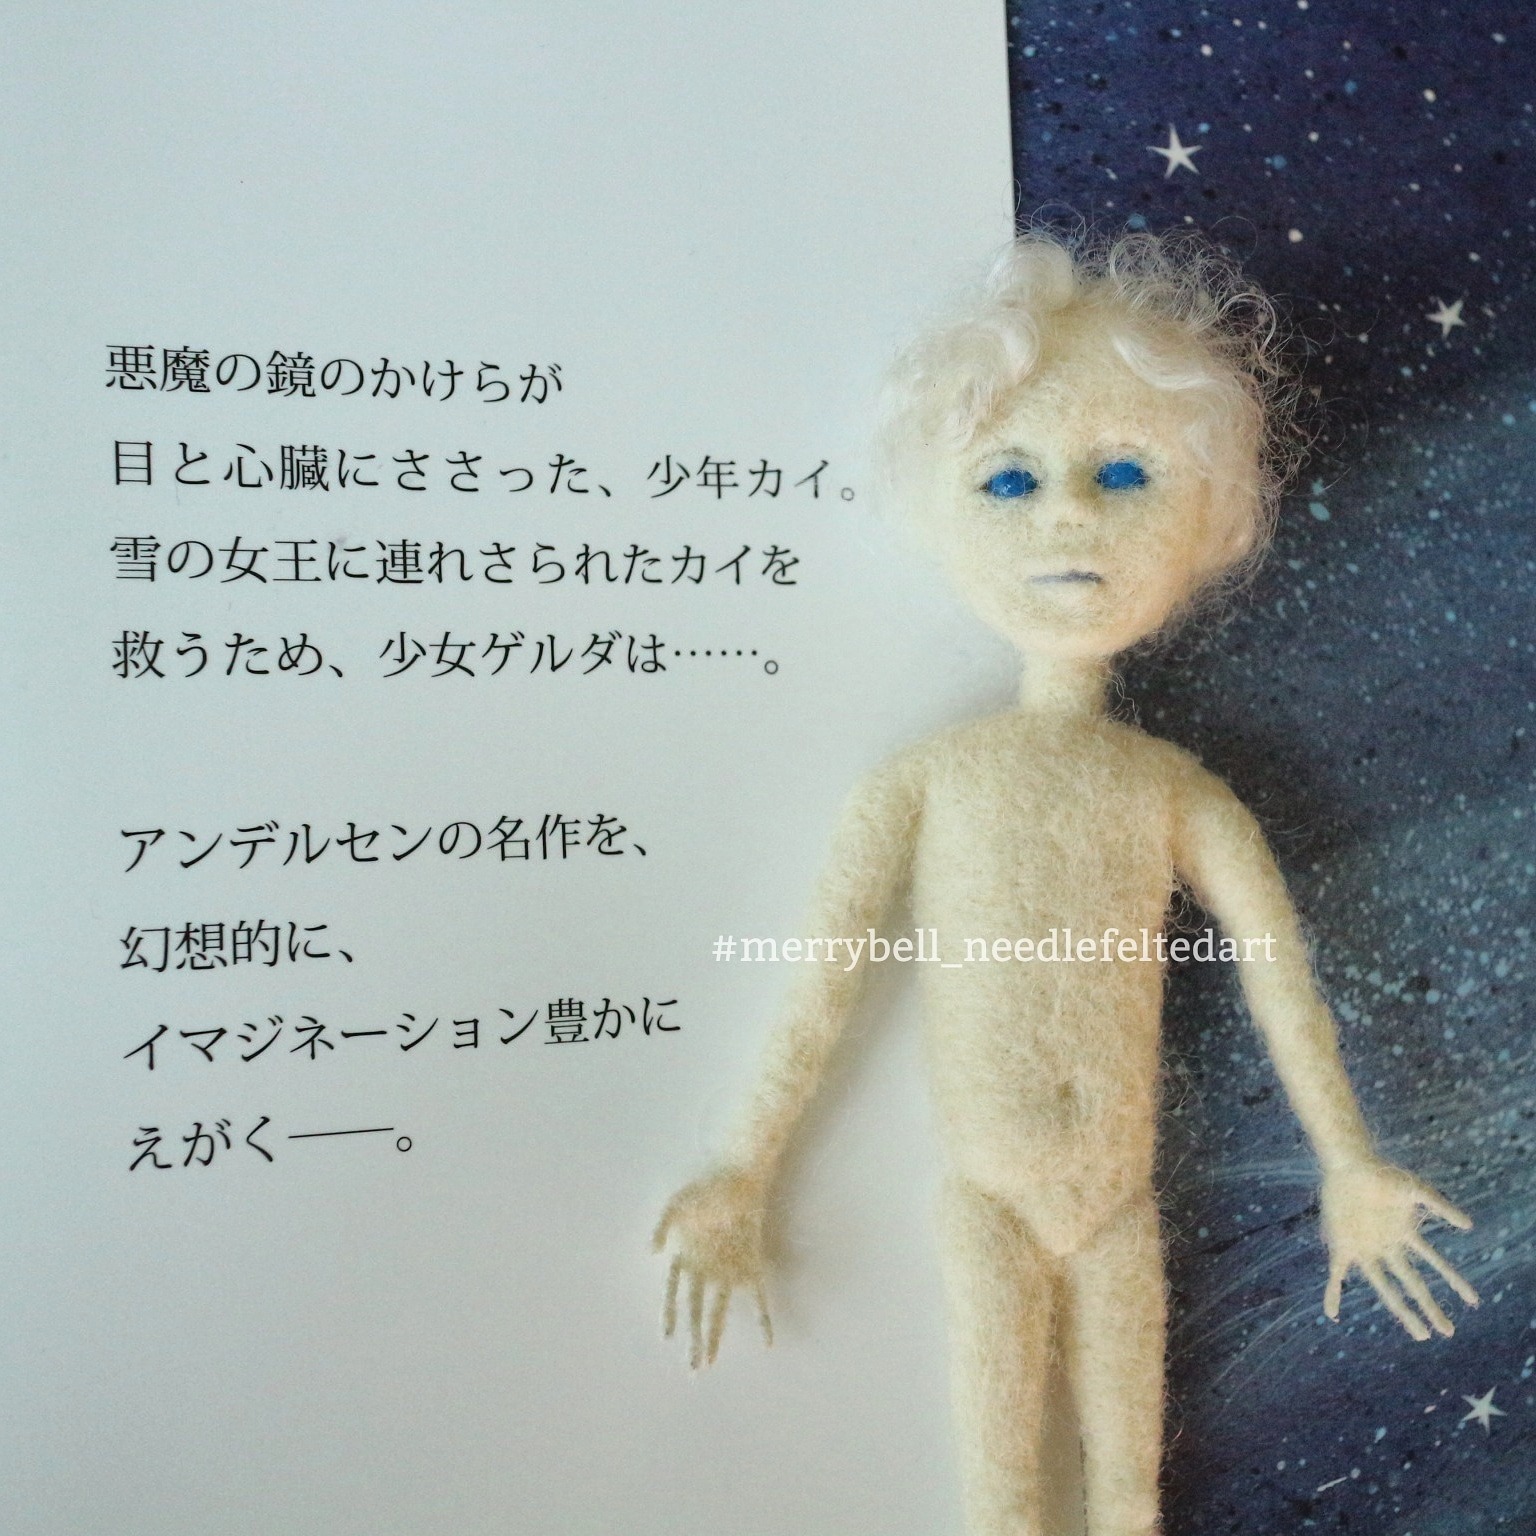 悪魔の鏡のかけらが
目と心臓にささった、少年カイ。
雪の女王に連れさられたカイを
救うため、少女ゲルダは……。
アンデルセンの名作を、
幻想的に、
イマジネーション豊かに
えがく――。
#merrybell_needlefeltedart